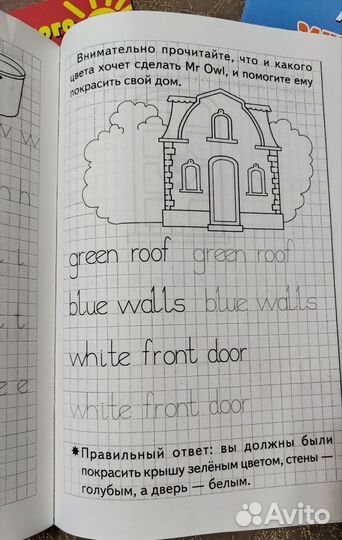 Внимательно прочитайте, что и какого
цвета хочет сделать Mr Owl, и помогите ему
покрасить свой дом.
green roof green roof
blue walls blue walls
white front door
white front door
*Правильный ответ: вы должны были
покрасить крышу зелёным цветом, стены —
голубым, а дверь — белым.
Avito